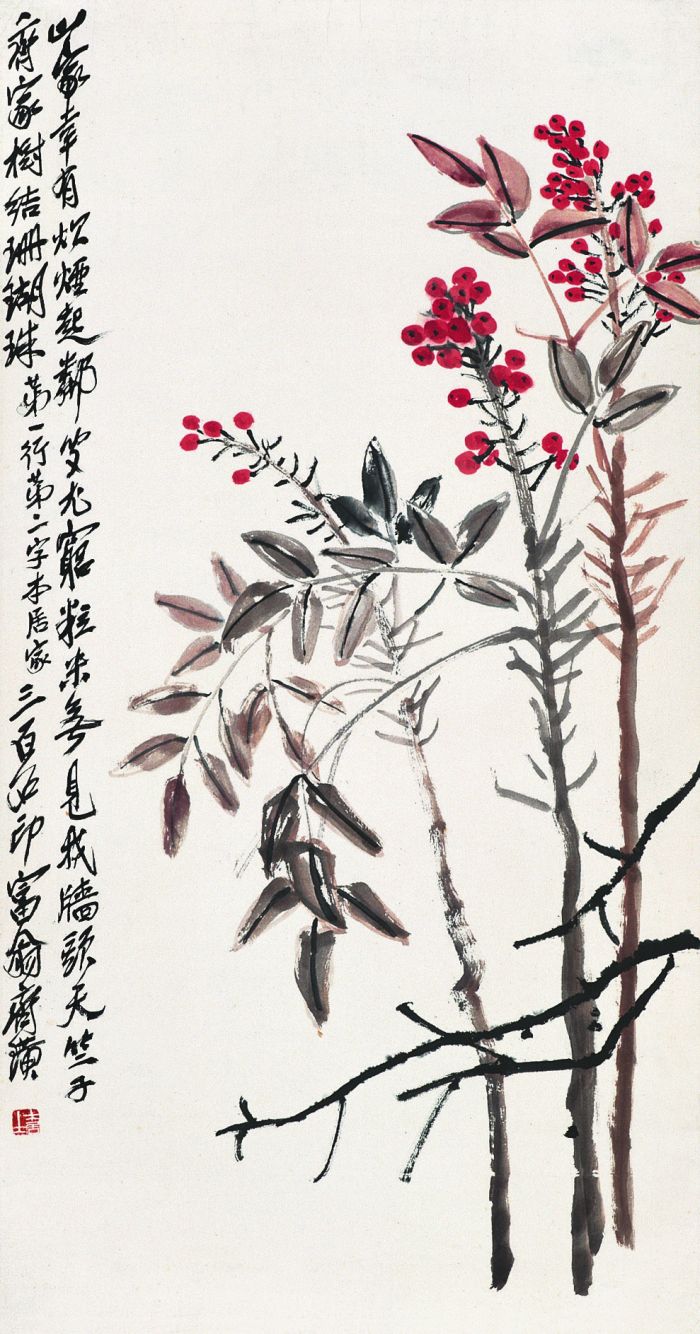 山家幸有炊煙起鄰叟尤窮粒米無見我牆頭天竺子
齊家樹結珊瑚珠第一行第二字本居三百石印富翁齊璜